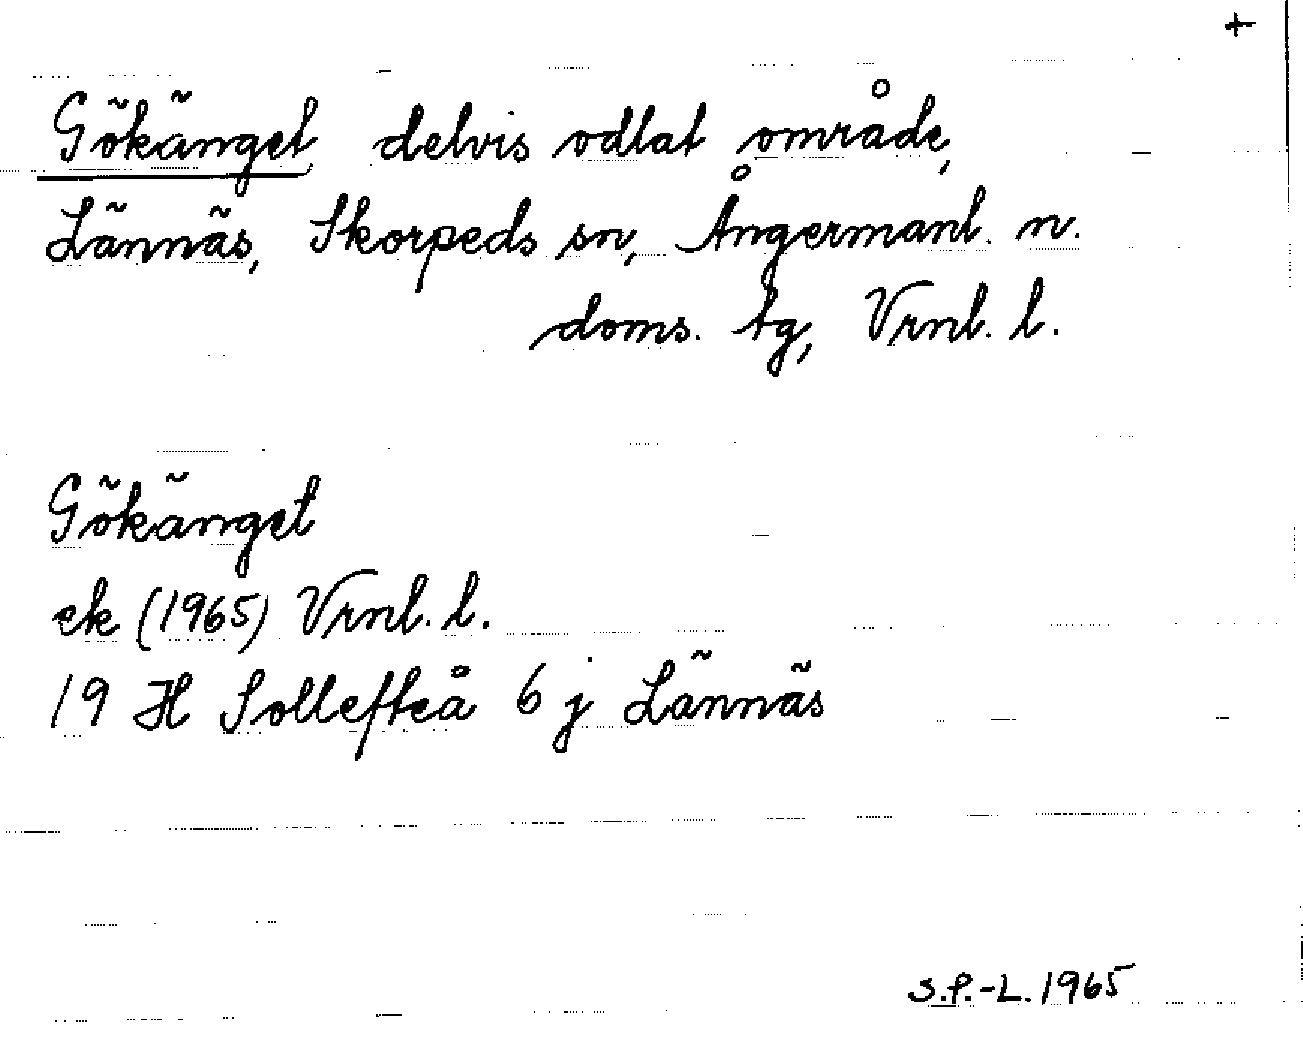 +
Gökänget, delvis odlat område,
Lännäs, Skorpeds sn, Ångermanl. n.
doms. tg, Vrnl. l.
Gökänget
ek (1965) Vrnl. l.
19 H Sollefteå 6 j Lännäs
S.P.-L. 1965